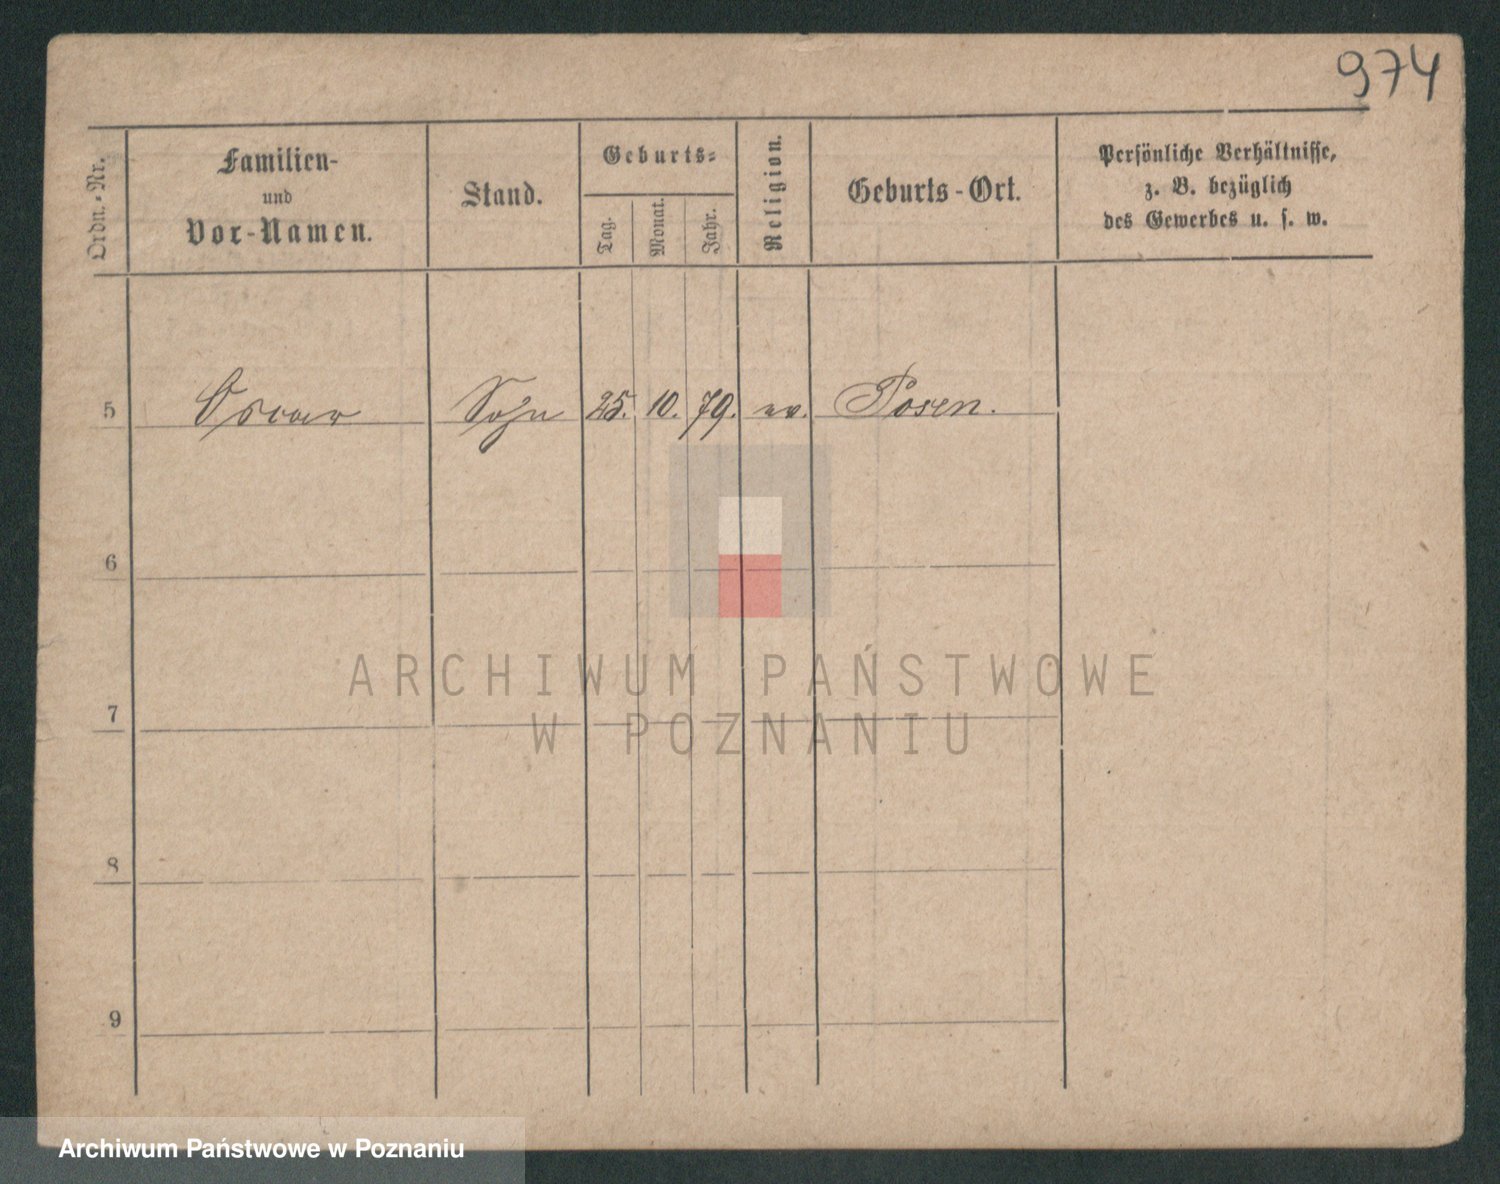 974
Ordn.-Nr.
Familien-
und
Vor-Namen.
Stand.
Geburts-
Tag.
Monat.
Jahr.
Religion.
Geburts-Ort.
Persönliche Verhältnisse,
z. B. bezüglich
des Gewerbes u. s. w.
5 Oscar Sohn 25. 10. 79. ev. Posen.
6
7
8
9
ARCHIWUM PAŃSTWOWE
W POZNANIU
Archiwum Państwowe w Poznaniu